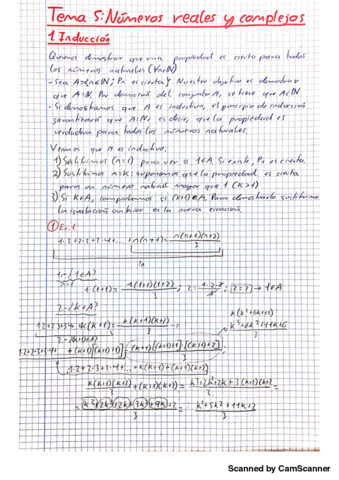 Tema 5: Números reales y complejos
1 Inducción
Queremos demostrar que una propiedad es cierta para todos
los números naturales (∀n∈ℕ)
- Sea A={n∈ℕ; Pn es cierta} Nuestro objetivo es demostrar
que A=ℕ. Por definición del conjunto A, se tiene que A⊂ℕ
- Si demostramos que A es inductivo, el principio de inducción
garantizará que A=ℕ, es decir, que la propiedad es
verdadera para todos los números naturales.
Veamos que A es inductivo:
1) Sustituimos (n=1) para ver si 1∈A. Si existe, P1 es cierta.
2) Sustituimos n=k: suponemos que la propiedad es cierta
para un número natural mayor que 1 (k>1)
3) Si k∈A, comprobamos si (k+1)∈A. Para demostrarlo sustituimos
la igualación anterior en la nueva ecuación.
① Ej. 1
1·2+2·3+3·4+... +n(n+1)= n(n+1)(n+2)/3
1.- ¿1∈A?
n=1
1·(1+1)= 1(1+1)(1+2)/3 ; 2= 1·2·3/3 ; 2=2 → 1∈A
2.- ¿k∈A?
1·2+2·3+3·4+...k(k+1)= k(k+1)(k+2)/3
1·2+2·3+3·4+... +(k+1)[(k+1)+1]= (k+1)[(k+1)+1]·[(k+1)+2]/3
1·2+2·3+3·4+... +k(k+1)+(k+1)(k+2)
k(k+1)(k+2)/3 +(k+1)(k+2)=